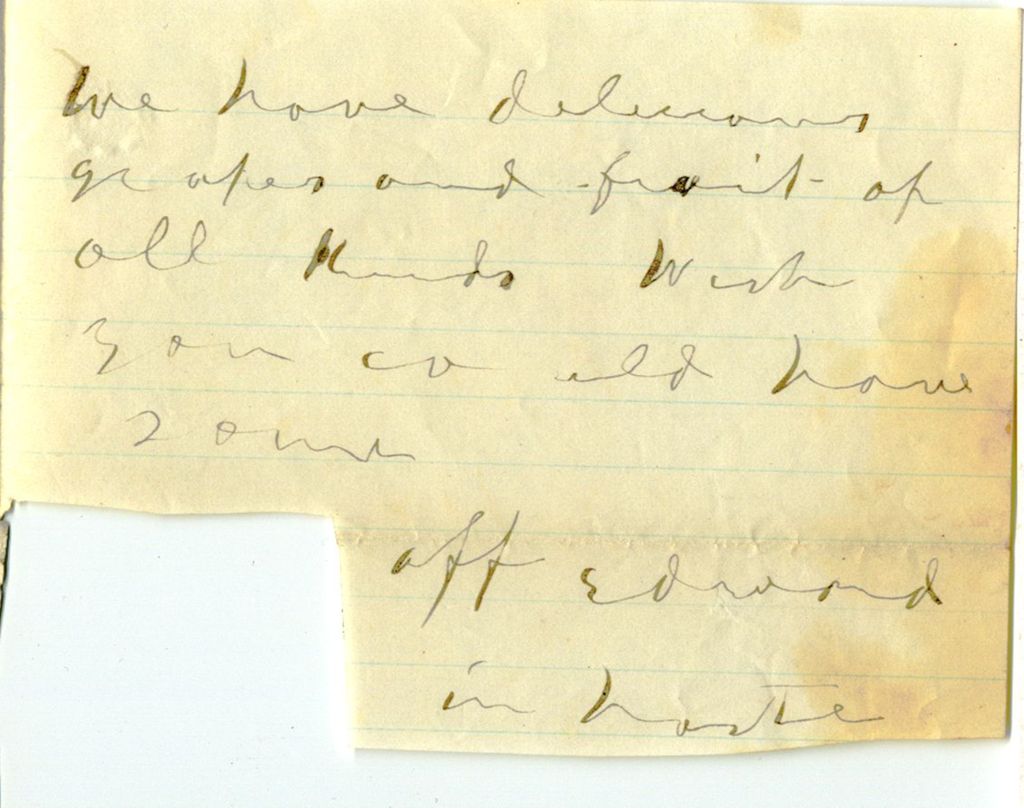 We have delicious
grapes and fruit of
all Kinds Wish
you could have
some
aff Edward
in haste